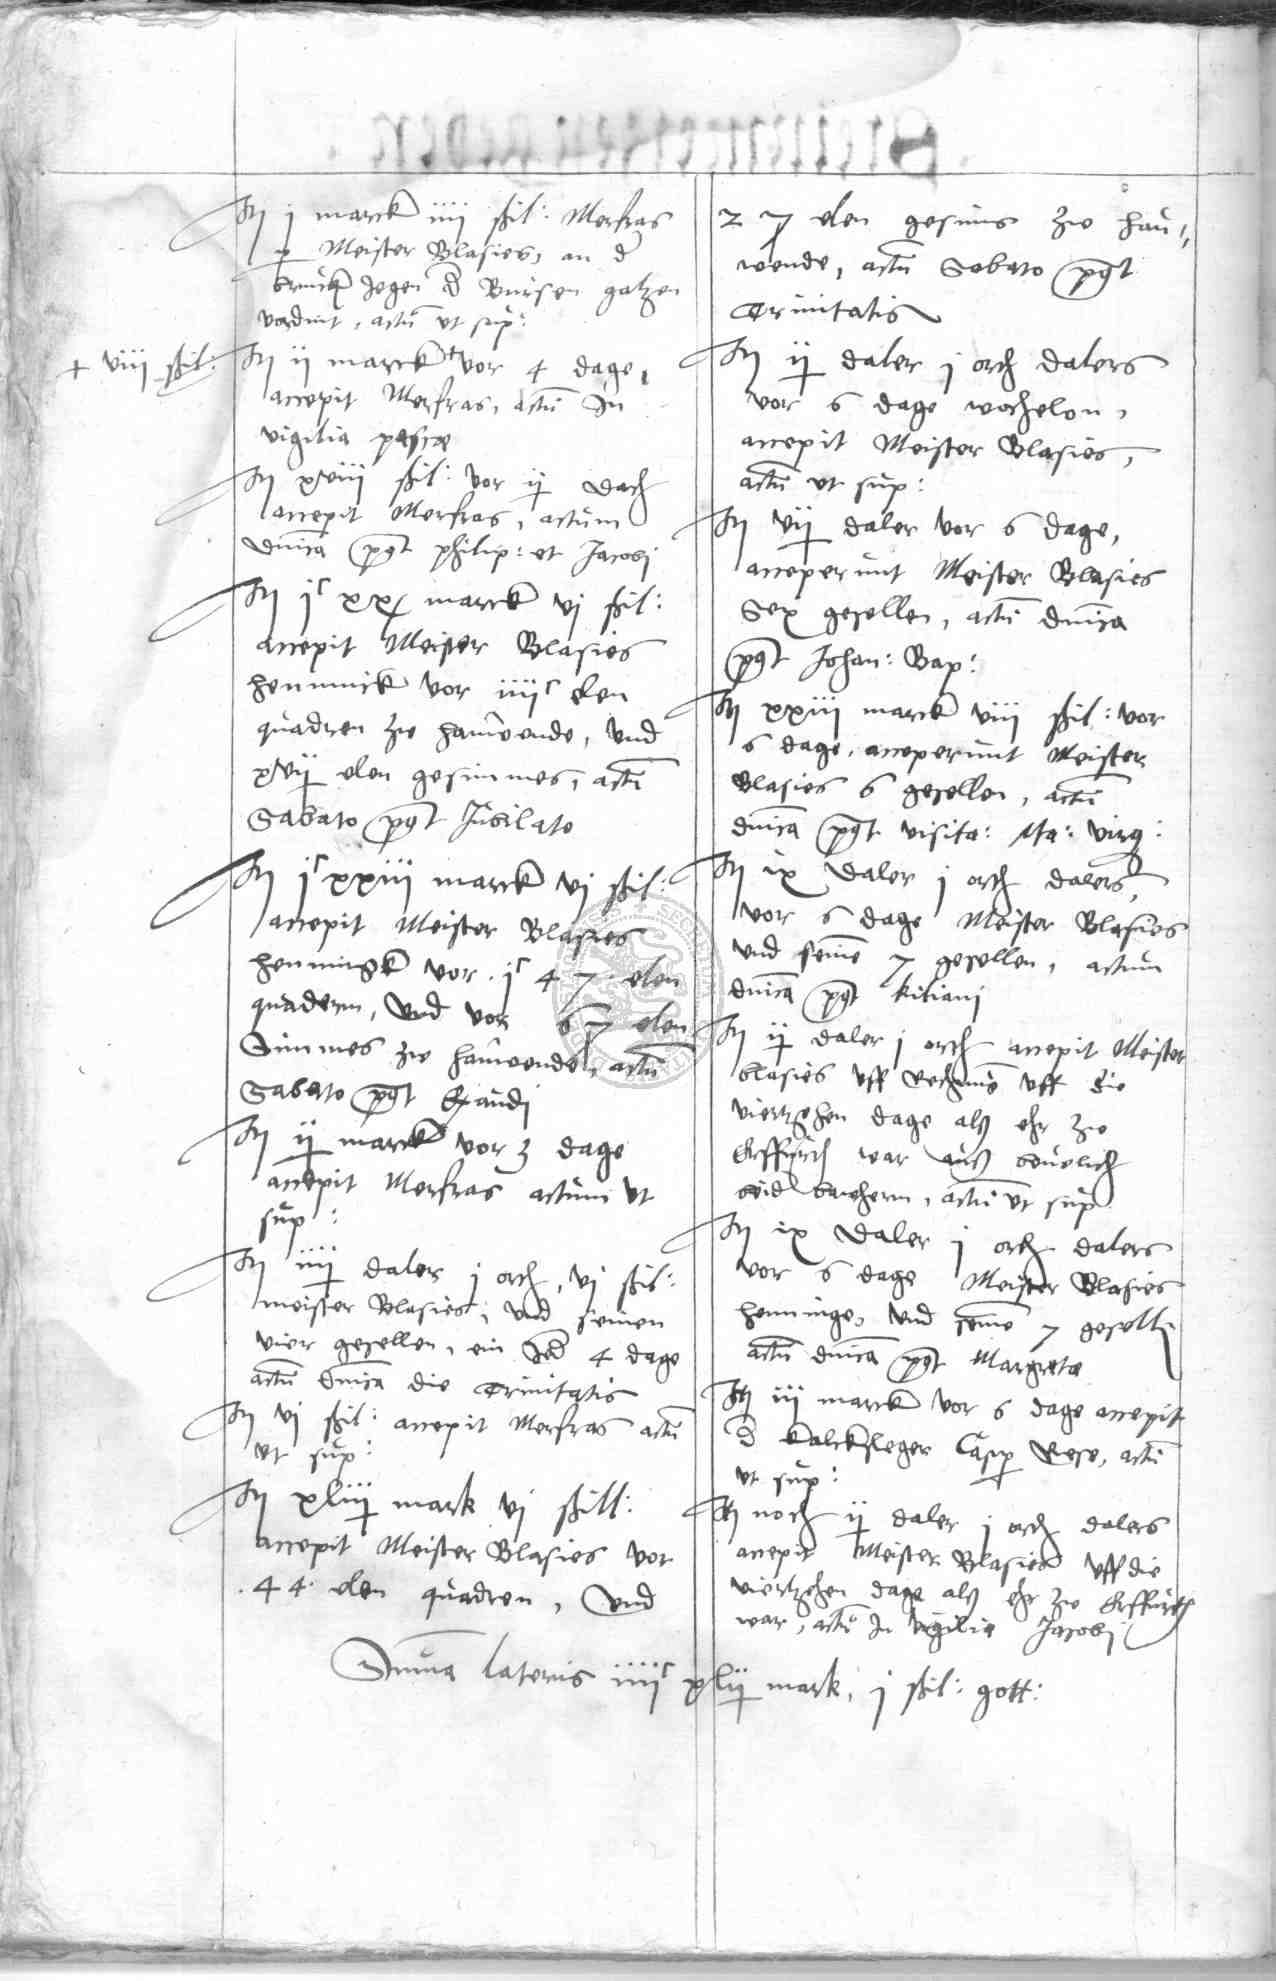 It j marck iiij ßil: Merfras
p Meister Blasies, an d
bruck Jegen d Bursen gatzen
vordint, actu ut sup:
+ viij ßil:
It ij marck + vor 4 dage,
accepit Merfras, actu In
vigilia pascæ
It xviij ßil: vor ij dach
accepit Merfras, actum
dnica post philip: et Jacobi
It jc xx marck vj ßil:
accepit Meister Blasies
henninck vor iiijc elen
quadren zw hauwende, und
xvij elen gesimmes, actu
Sabato post Jubilate
It jc xxiij marck vj ßil:
accepit Meister Blasies
henningk vor jc 4 7 elen
quadern, und vor 6 7 elen
Simmes zw hauwende, actu
Sabato post Exaudi
It ij marck vor 3 dage
accepit Merfras actum ut
sup:
It iiij daler j orth, vj ßil:
meister Blasies, und seinen
vier gesellen, ein Jed 4 dage
actu dnica die Trinitatis
It vj ßil: accepit Merfras actu
ut sup:
It xliij mark vj ßill:
accepit Meister Blasies vor
44 elen quadren, und
27 elen gesims zw hau=
wende, actu Sabato post
Trinitatis
It ij daler j orth dalers
vor 6 dage wochelon,
accepit Meister Blasies,
actu ut sup:
It vij daler vor 6 dage,
acceperunt Meister Blasies
Sex gesellen, actu dnica
post Johan: Bap:
It xxiij marck viij ßil: vor
6 dage, acceperunt Meister
Blasies 6 gesellen, actu
dnica post visita: Ma: virg:
It ix daler j orth dalers,
vor 6 dage Meister Blasies
und seine 7 gesellen, actum
dnica post kiliani
It ij daler j orth accepit Meister
blasies uff Rechnung uff die
viertzehen dage als ehr zw
Erffurth war aus bevelich
der bawhern, actu ut sup
It ix daler j orth dalers
vor 6 dage Meister Blasies
henninge, und seine 7 gesell
actu dnica post Margrete
It iij marck vor 6 dage accepit
d kalcksleger Casp Rese, actu
ut sup:
It noch ij daler j orth dalers
accepit Meister Blasies uff die
viertzehen dage als ehr zw Erffurth
war, actu In vigilia Jacobi
Suma lateris iiijc xlij mark, j ßil: gott: